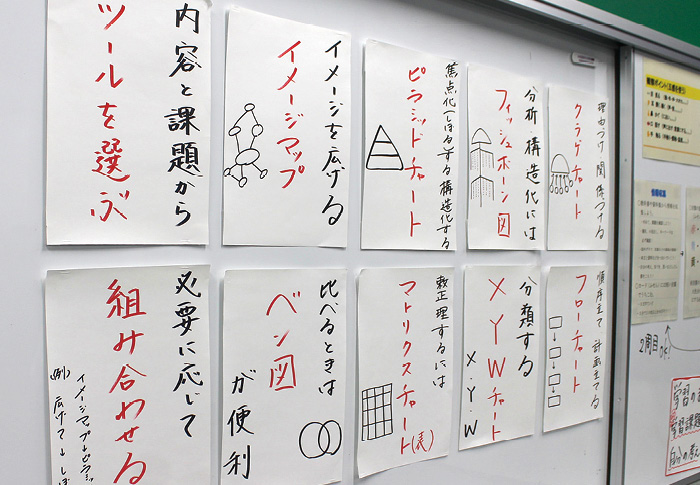 理由づけ 関係づける
クラゲチャート
分析・構造化には
フィッシュボーン図
焦点化(しぼる)する 構造化する
ピラミッドチャート
イメージを広げる
イメージマップ
内容と課題から
ツールを選ぶ
順序立て 計画立てる
フローチャート
分類する
XYWチャート
X・Y・W
整理するには
マトリクスチャート(表)
比べるときは
ベン図
が便利
必要に応じて
組み合わせる
イメージマップ→ピラミッ
(例) 広げて → しぼ
2周目
OK!
学習の
学習課題
自分の考え